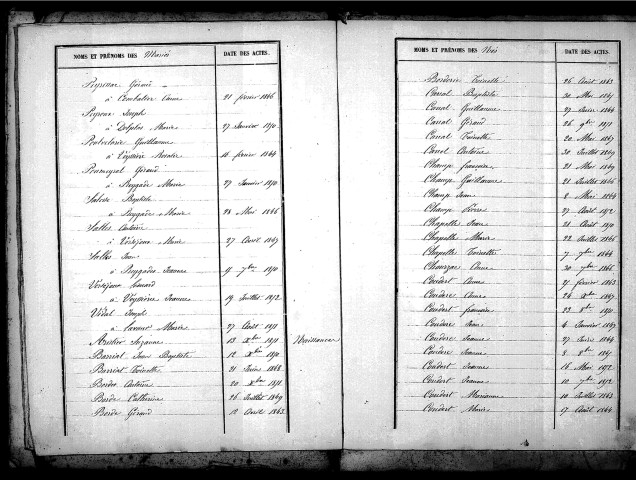 NOMS ET PRÉNOMS DES Mariés DATE DES ACTES.
Peyssou Géraud
à Combatier Anne 21 février 1866
Peyrou Joseph
à Delpeles Marie 27 Janvier 1870
Pontvelarie Guillaume
à Veyssière Rosalie 11 février 1864
Pommepal Géraud
à Puygade Marie 27 Janvier 1870
Salesse Baptiste
à Puygade Marie 28 Mai 1866
Salles Antoine
à Vertéjoux Marie 27 Avril 1867
Salles Jean
à Puygades Jeanne 19 7bre 1870
Vertéjoux Léonard
à Veyssière Jeanne 19 Juillet 1872
Vidal Joseph
à Marie 27 Août 1871
Suzanne 13 Xbre 1871 Naissances
Barriat Jean Baptiste 12 Xbre 1870
Barriat Toinette 21 Juin 1868
Bordes Antoine 20 Xbre 1871
Borde Catherine 26 Juillet 1869
Borde Géraud 12 Avril 1863
NOMS ET PRÉNOMS DES Nés DATE DES ACTES.
Borderie Toinette 26 Août 1863
Canal Baptiste 30 Mai 1867
Canal Guillaume 27 1864
Canal Géraud 26 9bre 1871
Canal Toinette 20 Mai 1867
Canal Antoine 30 Juillet 1869
Champ francoise 21 Mai 1869
Champ Guillaume 21 Juillet 1866
Champ Jean 8 Mai 1864
Champ 27 Août 1872
Chapelle Jean 21 Août 1870
Chapelle Marie 22 Juillet 1866
Chapelle Toinette 7 7bre 1864
Chauzas Anne 30 7bre 1866
Condert Anne 21 février 1863
Condere Anne 26 Xbre 1867
Condert francoise 23 8bre 1870
Condere Jean 4 Janvier 1869
Condere Jeanne 27 Juin 1864
Condere Jeanne 8 8bre 1867
Condert Jeanne 16 Mai 1872
Condert Jeanne 10 7bre 1872
Condert Marianne 10 Juillet 1863
Condert Marie 17 Août 1864